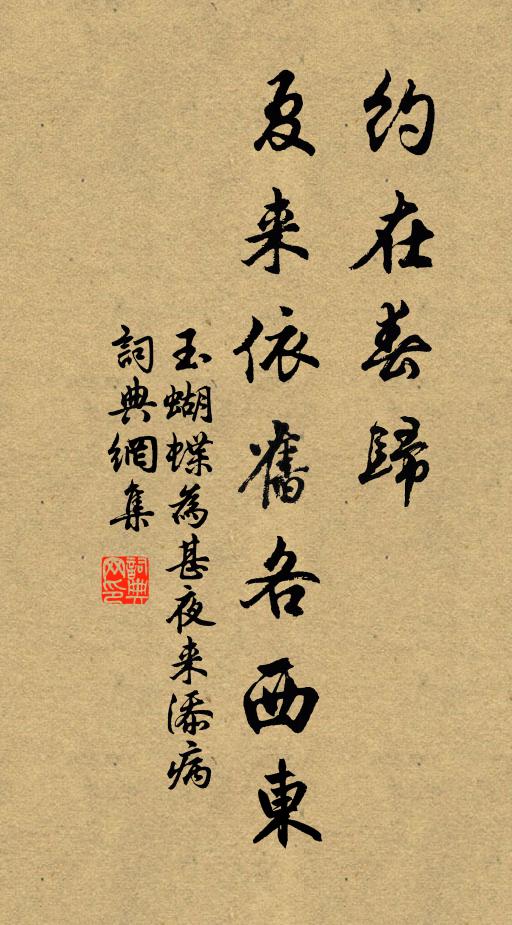 约在春歸
夏来依舊各西東
玉蝴蝶為甚夜来添病
詞典網集
詞典
网印